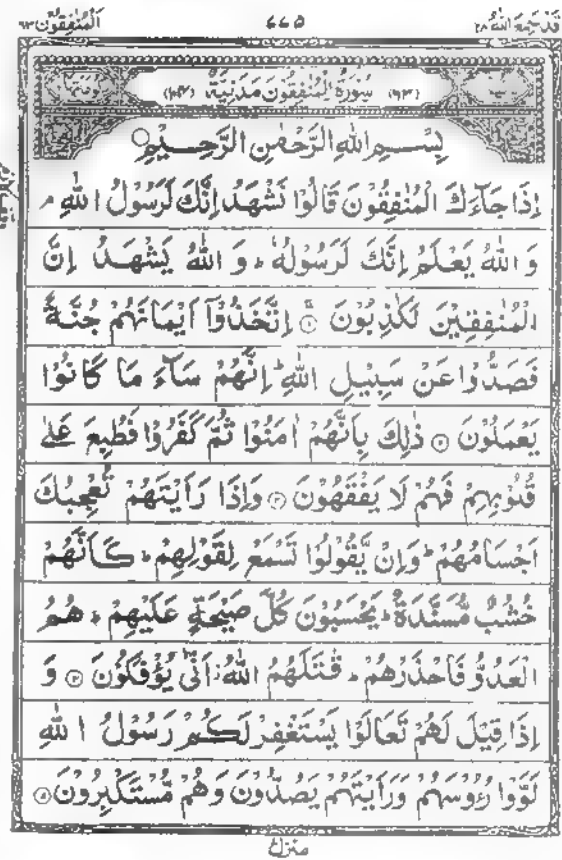 قَدْسَمِعَ اللهُ ٢٨ ٦٦٥ اَلْمُنٰفِقُوْنَ ٦٣
(٦٣) سُوْرَةُ الْمُنٰفِقُوْنَ مَدَنِيَّةٌ
بِسْمِ اللهِ الرَّحْمٰنِ الرَّحِيْمِ
اِذَا جَآءَكَ الْمُنٰفِقُوْنَ قَالُوْا نَشْهَدُ اِنَّكَ لَرَسُوْلُ اللهِ م
وَ اللهُ يَعْلَمُ اِنَّكَ لَرَسُوْلُهٗ ؕ وَ اللهُ يَشْهَدُ اِنَّ
الْمُنٰفِقِيْنَ لَكٰذِبُوْنَ ۝١ اِتَّخَذُوْۤا اَيْمَانَهُمْ جُنَّةً
فَصَدُّوْا عَنْ سَبِيْلِ اللهِ ؕ اِنَّهُمْ سَآءَ مَا كَانُوْا
يَعْمَلُوْنَ ۝٢ ذٰلِكَ بِاَنَّهُمْ اٰمَنُوْا ثُمَّ كَفَرُوْا فَطُبِعَ عَلٰى
قُلُوْبِهِمْ فَهُمْ لَا يَفْقَهُوْنَ ۝٣ وَاِذَا رَاَيْتَهُمْ تُعْجِبُكَ
اَجْسَامُهُمْ ؕ وَاِنْ يَّقُوْلُوْا تَسْمَعْ لِقَوْلِهِمْ ؕ كَاَنَّهُمْ
خُشُبٌ مُّسَنَّدَةٌ ؕ يَحْسَبُوْنَ كُلَّ صَيْحَةٍ عَلَيْهِمْ ؕ هُمُ
الْعَدُوُّ فَاحْذَرْهُمْ ؕ قٰتَلَهُمُ اللهُ ؗ اَنّٰى يُؤْفَكُوْنَ ۝٤ وَ
اِذَا قِيْلَ لَهُمْ تَعَالَوْا يَسْتَغْفِرْ لَكُمْ رَسُوْلُ اللهِ
لَوَّوْا رُءُوْسَهُمْ وَرَاَيْتَهُمْ يَصُدُّوْنَ وَهُمْ مُّسْتَكْبِرُوْنَ ۝٥
منزل